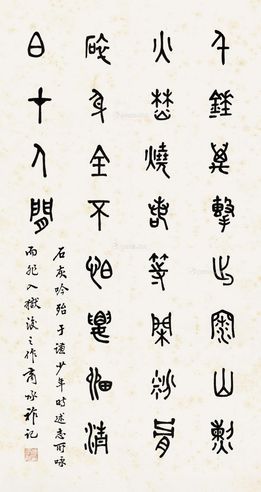 千錘萬擊出深山烈
火焚燒若等閑粉骨
碎身全不怕要留清
白在人間
石灰吟殆于謙少年時述志所咏
而非入獄後之作商承祚記